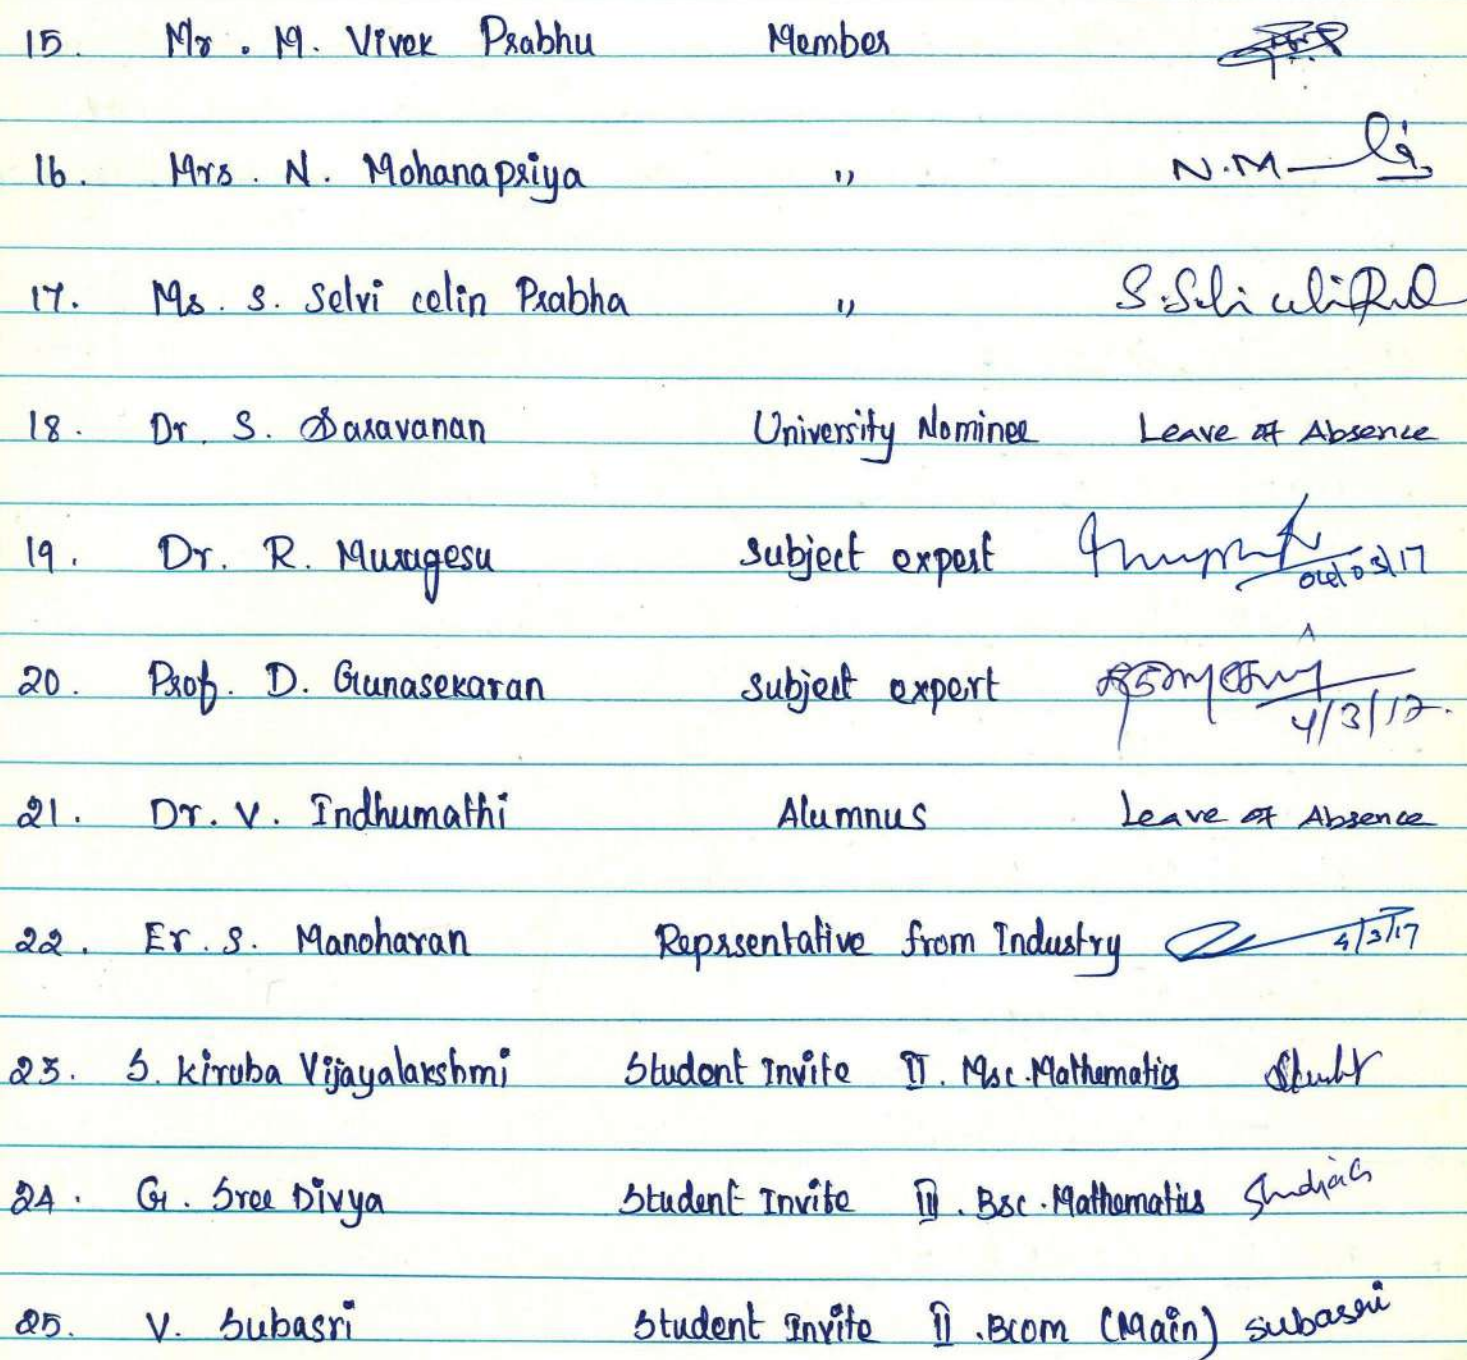 15. Mr. M. Vivek Prabhu Member
16. Mrs. N. Mohanapriya " N.M
17. Ms. S. Selvi celin Prabha "
18. Dr. S. Saravanan University Nominee Leave of Absence
19. Dr. R. Murugesu Subject expert 04/03/17
20. Prof. D. Gunasekaran Subject expert 4/3/17.
21. Dr. V. Indhumathi Alumnus Leave of Absence
22. Er. S. Manoharan Reprsentative from Industry 4/3/17
23. S. Kiruba Vijayalakshmi Student Invite II. Msc. Mathematics
24. G. Sree Divya Student Invite III. Bsc. Mathematics
25. V. Subasri Student Invite II. Bcom (Main) Subasri